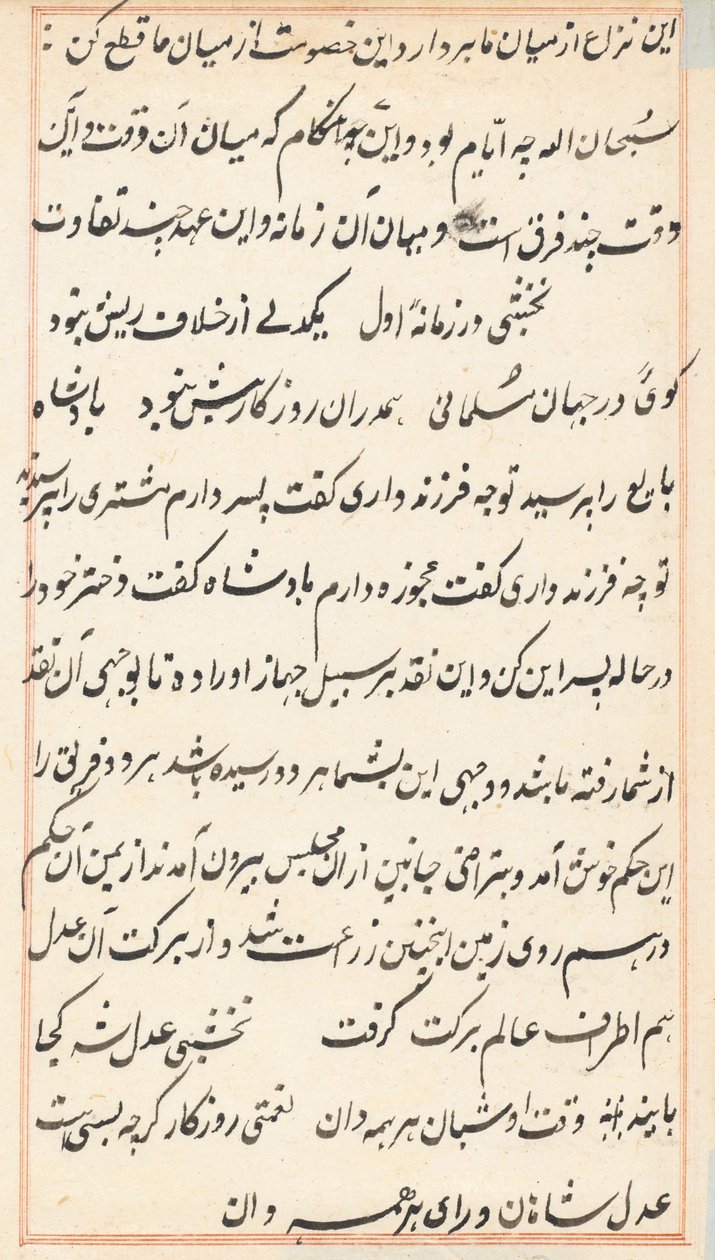 این نزاع از میان ما بردار و این خصومت از میان ما قطع کن
سُبحان الله چه ایّام بود و این چه هنکام که میان آن وقت و این
وقت چند فرق است و میان آن زمانه و این عهد چند تفاوت
نخشبی در زمانهٔ اول یکدلی از خلاف ریش نبود
کوئی در جهان مُسلمانی همدران روزکار بیش نبود بادشاه
بایع را پرسید تو چه فرزند داری کفت پسر دارم مشتری را پرسید که
تو چه فرزند داری کفت عجوزه دارم بادشاه کفت دختر خود را
در حاله پسر این کن و این نقد بر سبیل جهاز او را ده تا بوجهی آن نقد
از شما رفته باشد و وجهی این بشما هر دو رسیده باشد هر دو فریق را
این حکم خوش آمد و بتراضی جانبین از ان مجلس بیرون آمدند از یمن آن حکم
در همه روی زمین اینچنین زراعت شد و از برکت آن عدل
هم اطراف عالم برکت کرفت نخشبی عدل شه کجا
یابند وقت او شبان هر همه دان نعمتی روزکار کرچه بسی است
عدل شاهان ورای هر همه دان